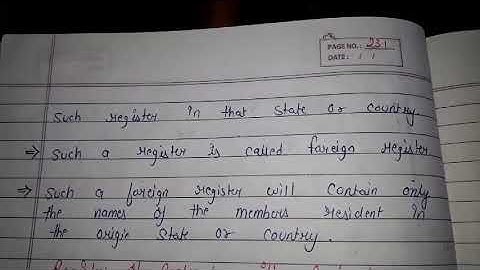 PAGE NO.: 231
DATE: / /
Such register in that state or country.
⇒ Such a register is called foreign register
⇒ Such a foreign register will contain only
the names of the members resident in
the origin state or country.